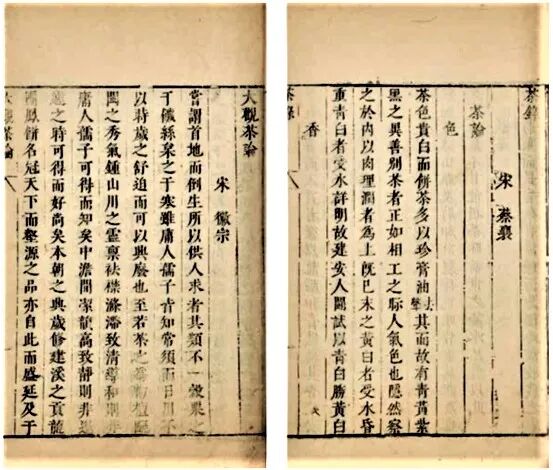 茶錄
宋 蔡襄
茶論
色
茶色貴白而餅茶多以珍膏油去聲其面故有青黃紫
黑之異善別茶者正如相工之眎人氣色也隱然察
之於內以肉理潤者為上既已末之黃白者受水昏
重青白者受水詳明故建安人鬪試以青白勝黃白
香
茶錄
大觀茶論
宋 徽宗
嘗謂首地而倒生所以供人求者其類不一穀粟之
于饑絲枲之于寒雖庸人孺子皆知常須而日用不
以時歲之舒迫而可以興廢也至若茶之為物擅甌
閩之秀氣鍾山川之靈禀祛襟滌滯致清導和則非
庸人孺子可得而知矣中澹閒潔韻高致靜則非遑
遽之時可得而好尚矣本朝之興歲修建溪之貢龍
團鳳餅名冠天下而壑源之品亦自此而盛延及于
大觀茶論